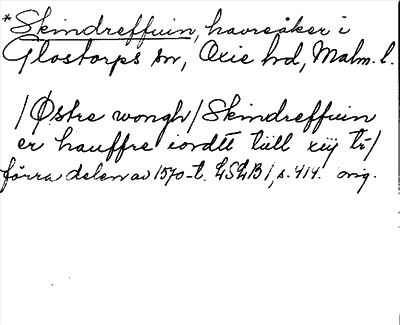 *Skindreffuin, havreåker i
Glostorps sn, Oxie hd, Malm. l.
/Østre wongh/Skindreffuin
er hauffre iordtt tiill xiij tr/
förra delen av 1570-t. LSLB 1, s. 414. orig.